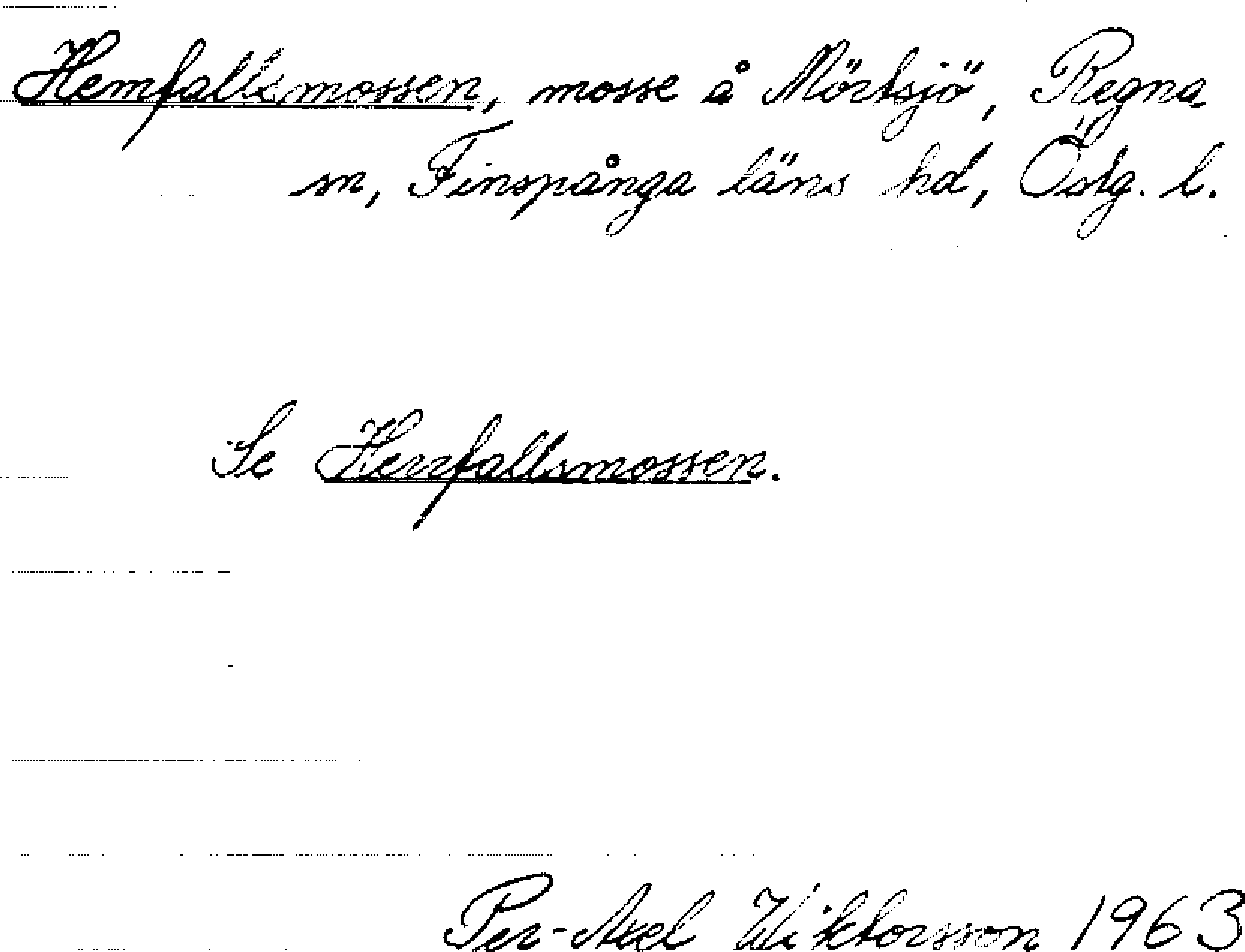 Hemfallsmossen, mosse å Mörtsjö, Regna
sn, Finspånga läns hd, Östg. l.
Se Herrfallsmossen.
Per-Axel Wiktorsson 1963